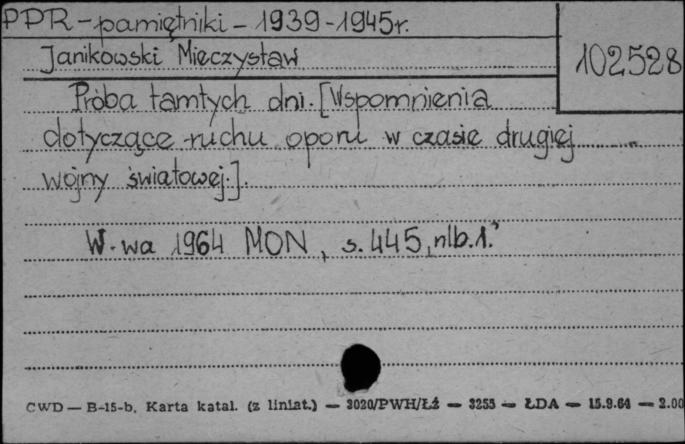 PPR - pamiętniki - 1939-1945r.
Janikowski Mieczysław
102528
Próba tamtych dni. [Wspomnienia
dotyczące ruchu oporu w czasie drugiej
wojny światowej.].
W-wa 1964 MON, s. 445, nlb. 1.
CWD — B-15-b. Karta katal. (z liniat.) — 3020/PWH/Łź — 3255 — ŁDA — 15.9.64 — 2.00